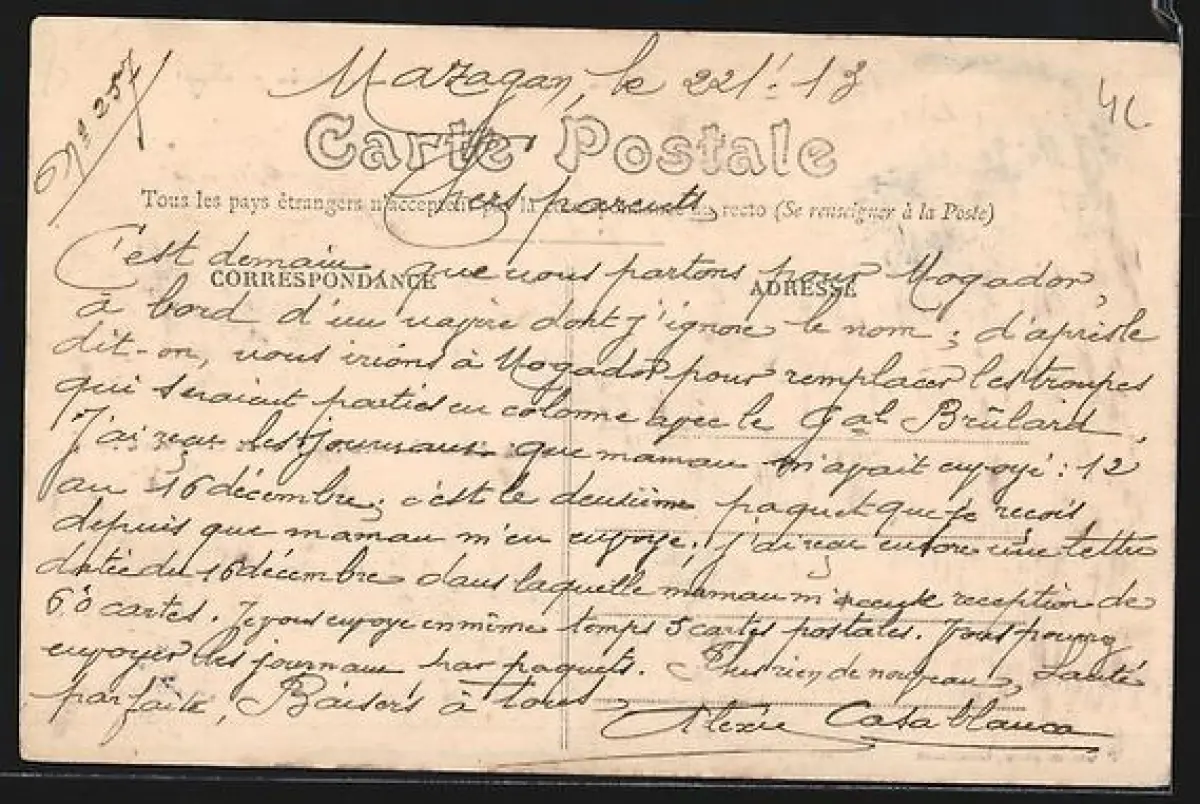 Nº 257
Mazagan, le 22/1.13
41
Carte Postale
Chers parents,
Tous les pays étrangers n'acceptent pas la correspondance au recto (Se renseigner à la Poste)
CORRESPONDANCE
ADRESSE
C'est demain que nous partons pour Mogador,
à bord d'un navire dont j'ignore le nom ; d'après le
dit-on, nous irions à Mogador pour remplacer les troupes
qui seraient parties en colonne avec le Gal Brûlard.
J'ai reçu les journaux que maman m'avait envoyé : 12
au 16 décembre ; c'est le deuxième paquet que je reçois
depuis que maman m'en envoye ; j'ai reçu encore une lettre
datée du 16 décembre dans laquelle maman m'accuse reception de
60 cartes. Je vous envoye en même temps 5 cartes postales. Vous pourrez
envoyer les journaux par paquets. Plus rien de nouveau, Santé
parfaite, Baisers à tous
Alexis Casablanca